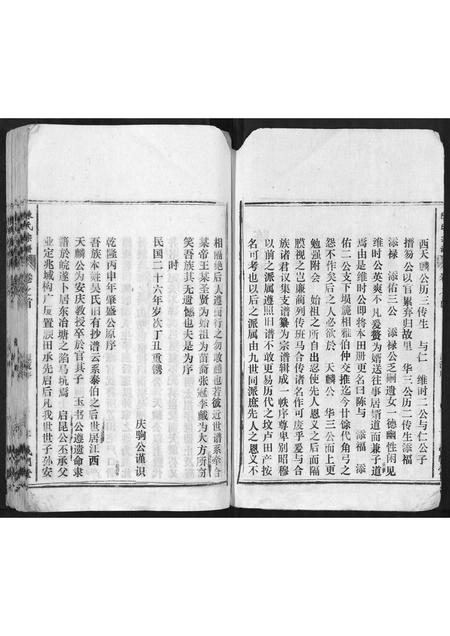 西天麟公历三传生 与仁 维时二公与仁公子
搢易公以旨累弃归故里 华三公历二传生添福
添禄 添佑三公 添禄公乏嗣遗女一德幽性闲见
维时公英爽不凡爱赘为婿送往事居婿道而兼子道
焉由是维时公即将本田册更名曰陈与 添福 添
佑二公支下埙箎相雅伯仲交推迄今廿馀代角弓之
怨不作矣后之人必欲於 天麟公 华三公而上更
勉强附会 始祖之所自出忍使先人恩义之后而隔
膜视之岂廉蔺列传班马合传诸名作可废乎爰与合
族诸君议集支谱纂为宗谱辑成一帙序尊卑别昭穆
以前之派属遵照旧谱不敢更易历代之坟卢田产按
名可考也以后之派属由九世同派庶先人之恩义不
相隔绝后人遵而行之勿敢越也若彼近世谱系牵合
某帝王某圣贤为始祖为苗裔张冠李戴为大方所窃
笑吾族其无遗憾也夫是为序
时
民国二十六年岁次丁丑重镌
庆驹公谨识
乾隆丙申年肇盛公原序
吾族本姓吴氏旧有抄谱云系泰伯之后世居江西
天麟公为安庆教授卒於官其子 玉书公遵遗命隶
籍於皖遂卜居东冶塘之㵎马坑焉 启昆公丕承父
业定兆城构广厦置腴田承先启后凡我世世子孙安